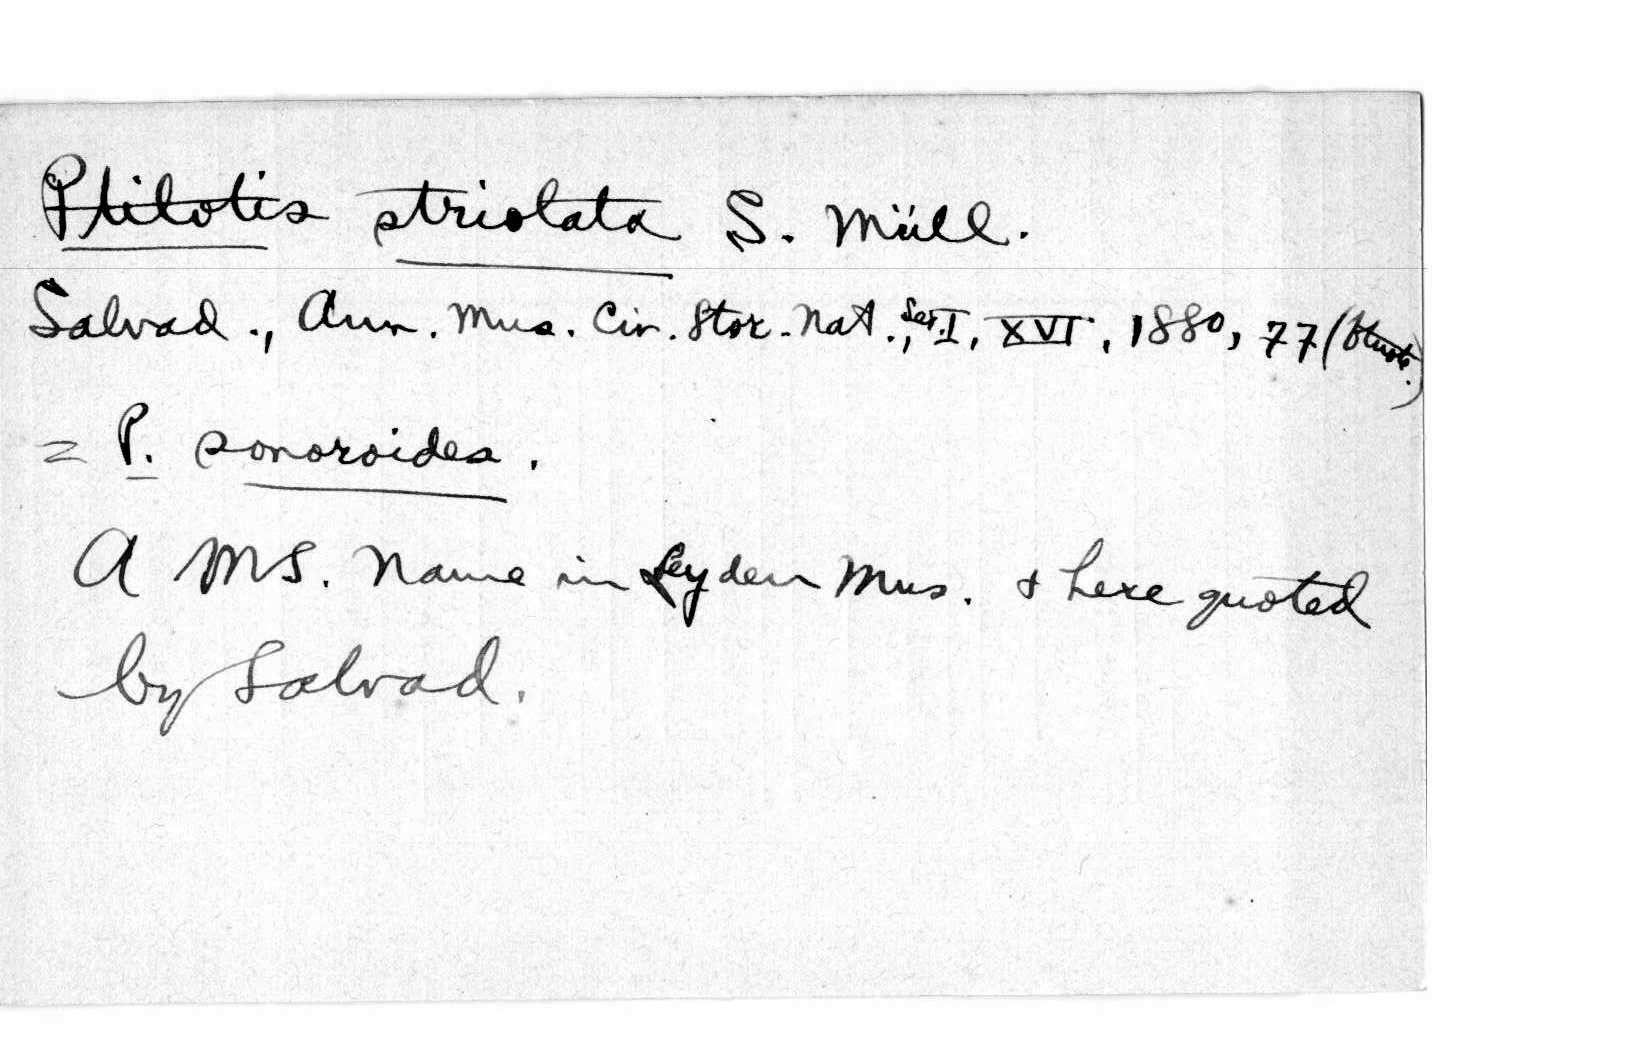 Ptilotis striolata S. Müll.
Salvad., Ann. Mus. Civ. Stor. Nat., Ser. I, XVI, 1880, 77 (ftnote.)
= P. sonoroides.
A MS. Name in Leyden Mus. & here quoted
by Salvad.